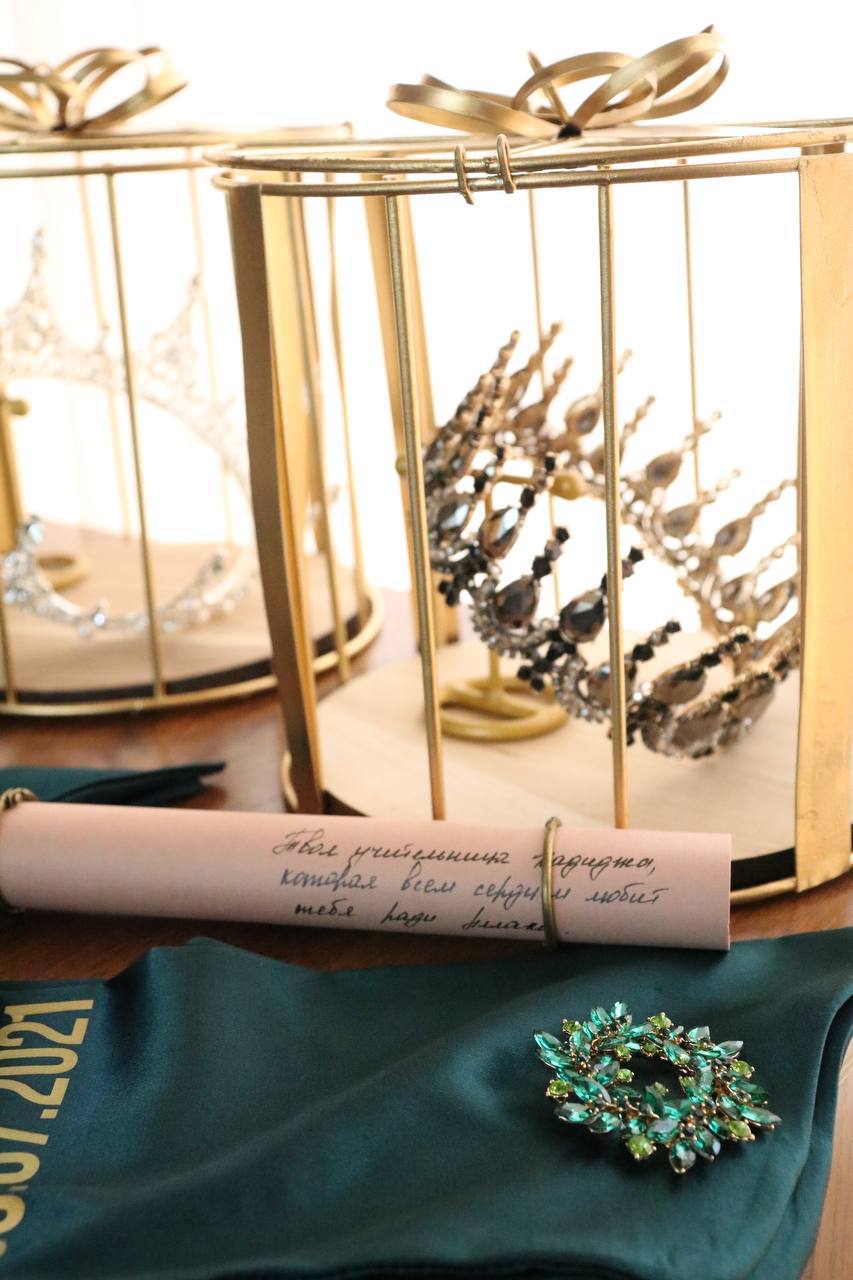 Твоя учительница Хадиджа,
которая всем сердцем любит
тебя ради Аллаха.
.07.2021